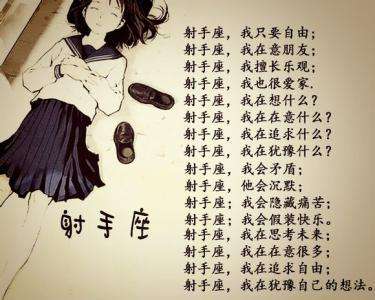 射手座，我只要自由；
射手座，我在意朋友；
射手座，我擅长乐观；
射手座，我也很爱家.
射手座，我在想什么？
射手座，我在在意什么？
射手座，我在追求什么？
射手座，我在犹豫什么？
射手座，我会矛盾；
射手座，他会沉默；
射手座；我会隐藏痛苦；
射手座；我会假装快乐。
射手座，我在思考未来；
射手座，我在在意很多；
射手座，我在追求自由；
射手座，我在犹豫自己的想法。
射手座